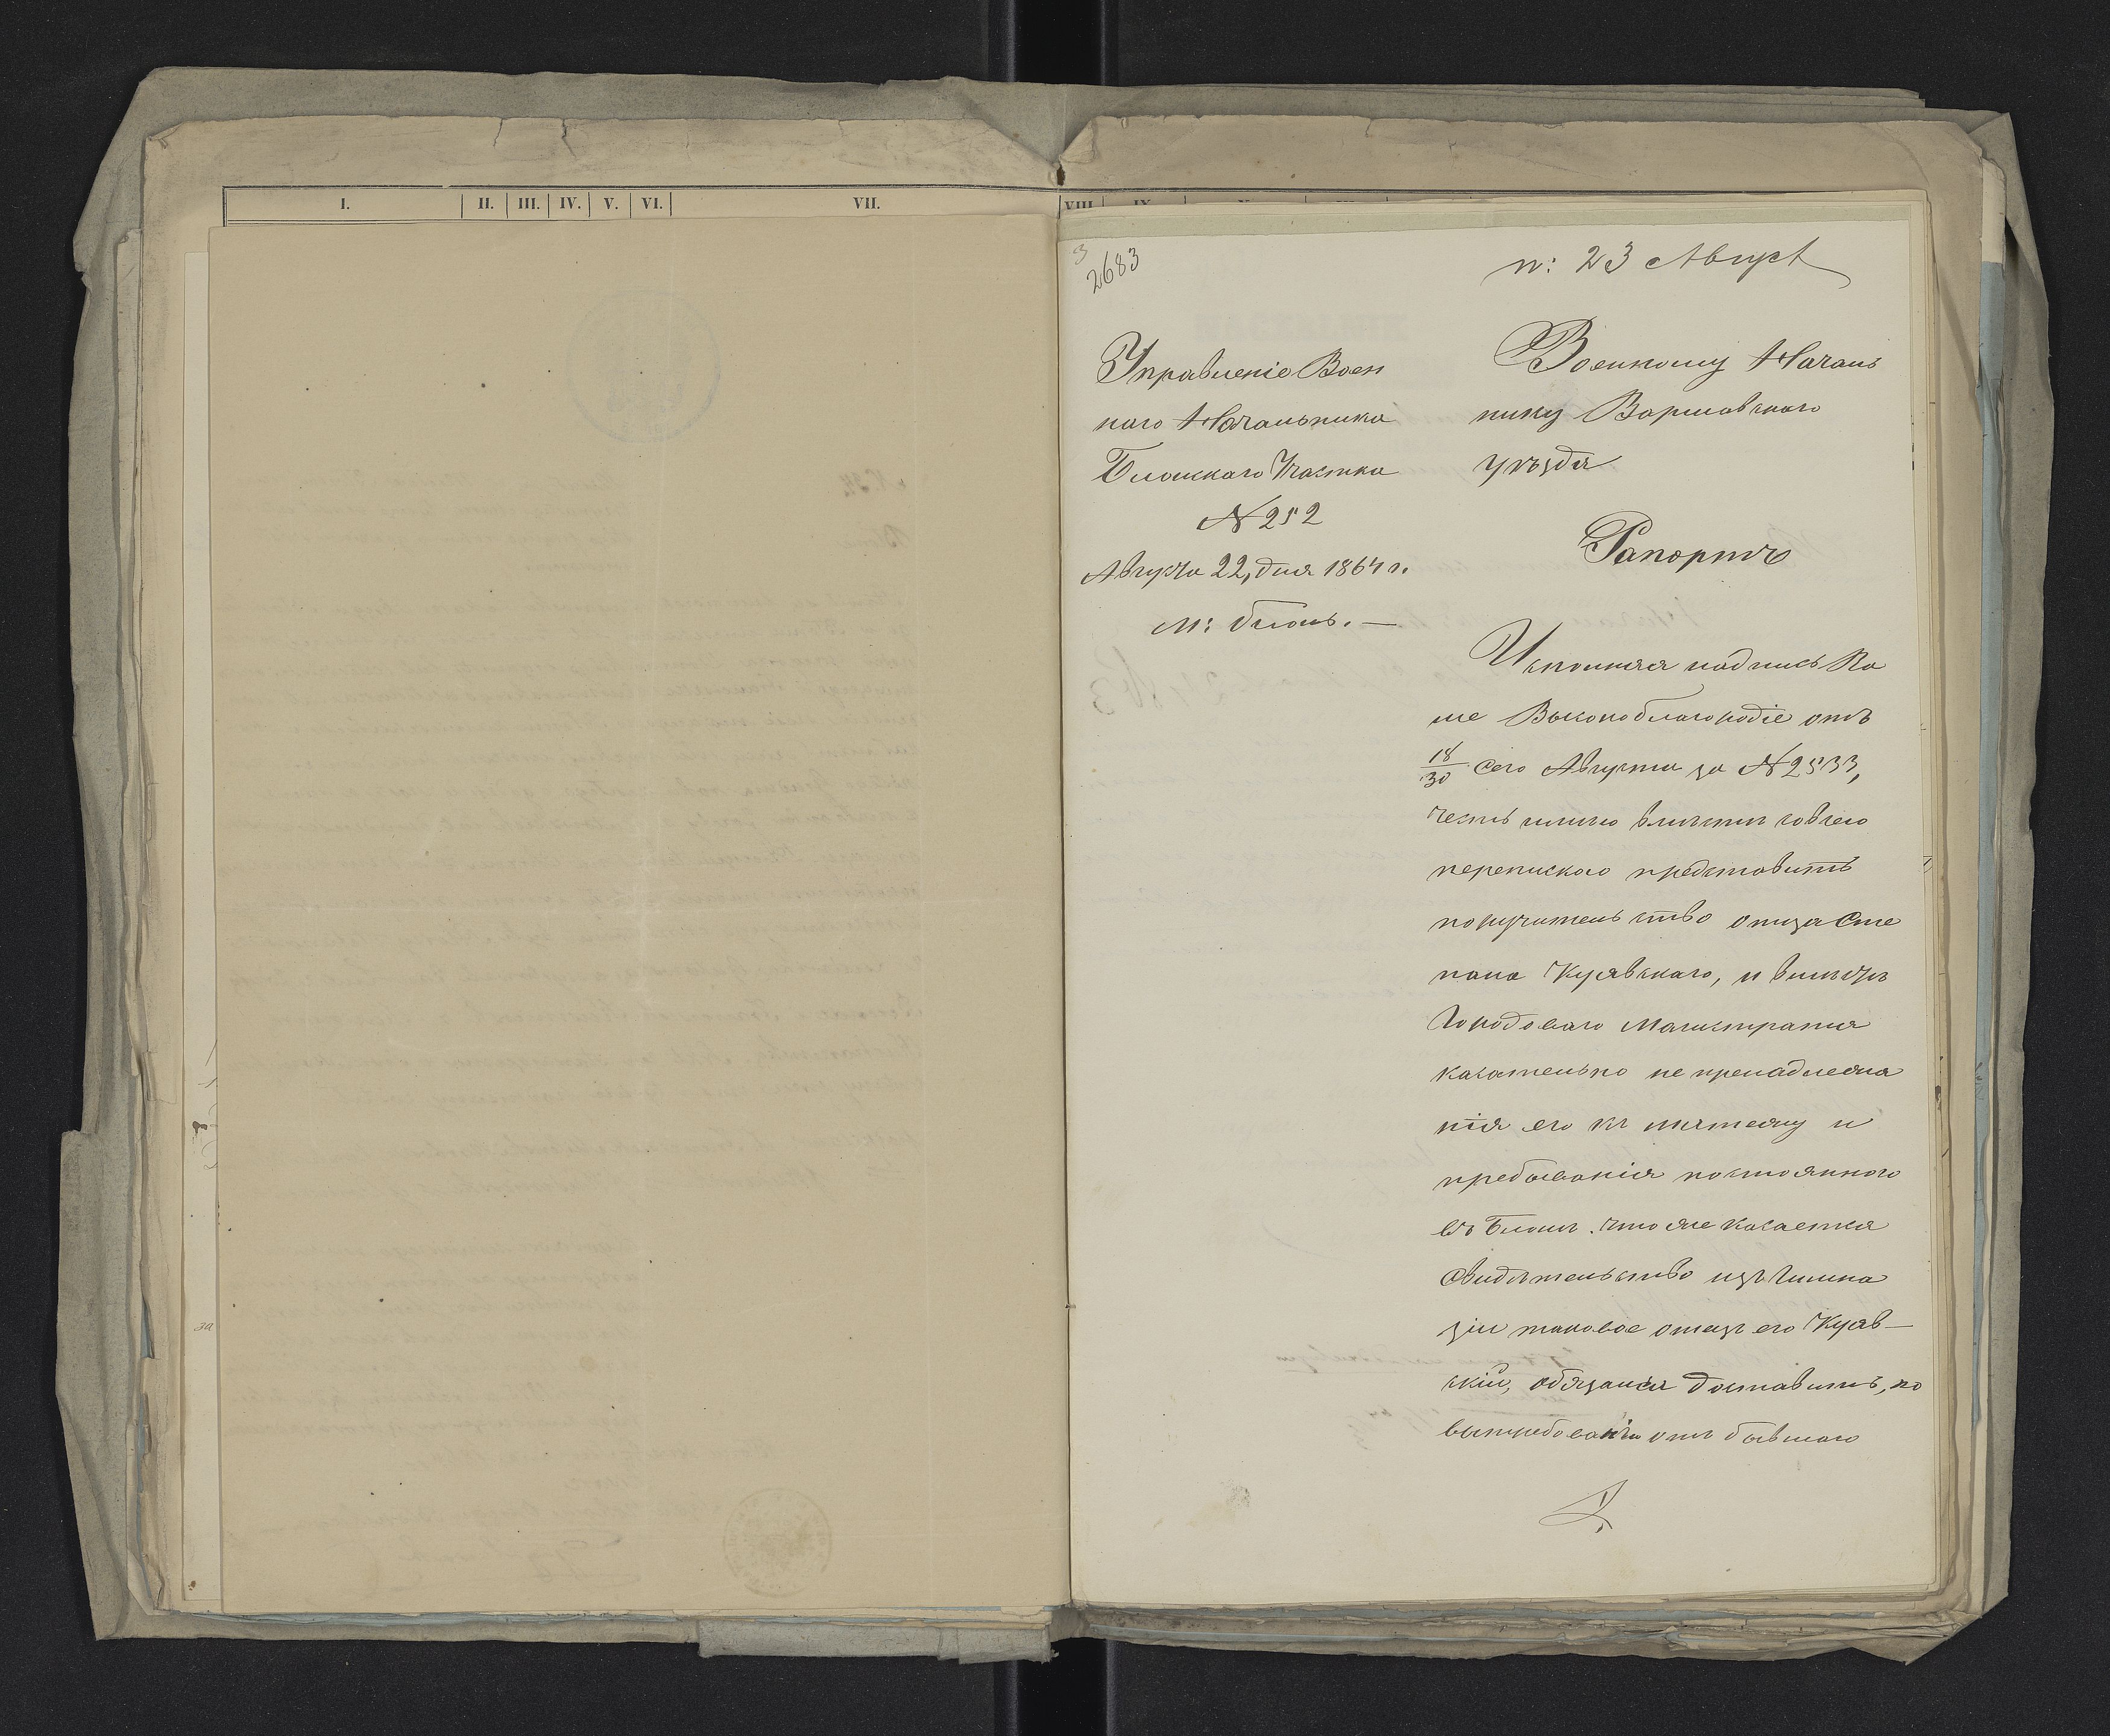 I. II. III. IV. V. VI. VII. VIII. IX.
3
2683
п: 23 Август
Управленіе Воен
наго Начальника
Блонскаго Участка
N 252
Августа 22, дня 1864 г.
М: блонь. —
Военному Началь
нику Варшавскаго
уѣзда
Рапортъ
Исполняя надпись Ва
ше Высокоблагородіе отъ
18/30 сего Августа за N 2533,
честь имѣю вмѣстѣ со всею
перепискою представить
поручительство отца Сте
пана Куявскаго, и
Городоваго Магистрата
касательно не пренадлежа
нія его къ мятежу и
пребыванія постояннаго
въ Блонѣ. что же касается
свидѣтельство изъ Гимна
зіи таковое отецъ его Куяв—
скій, обязался доставить, по
вытребованіи отъ бывшаго
за